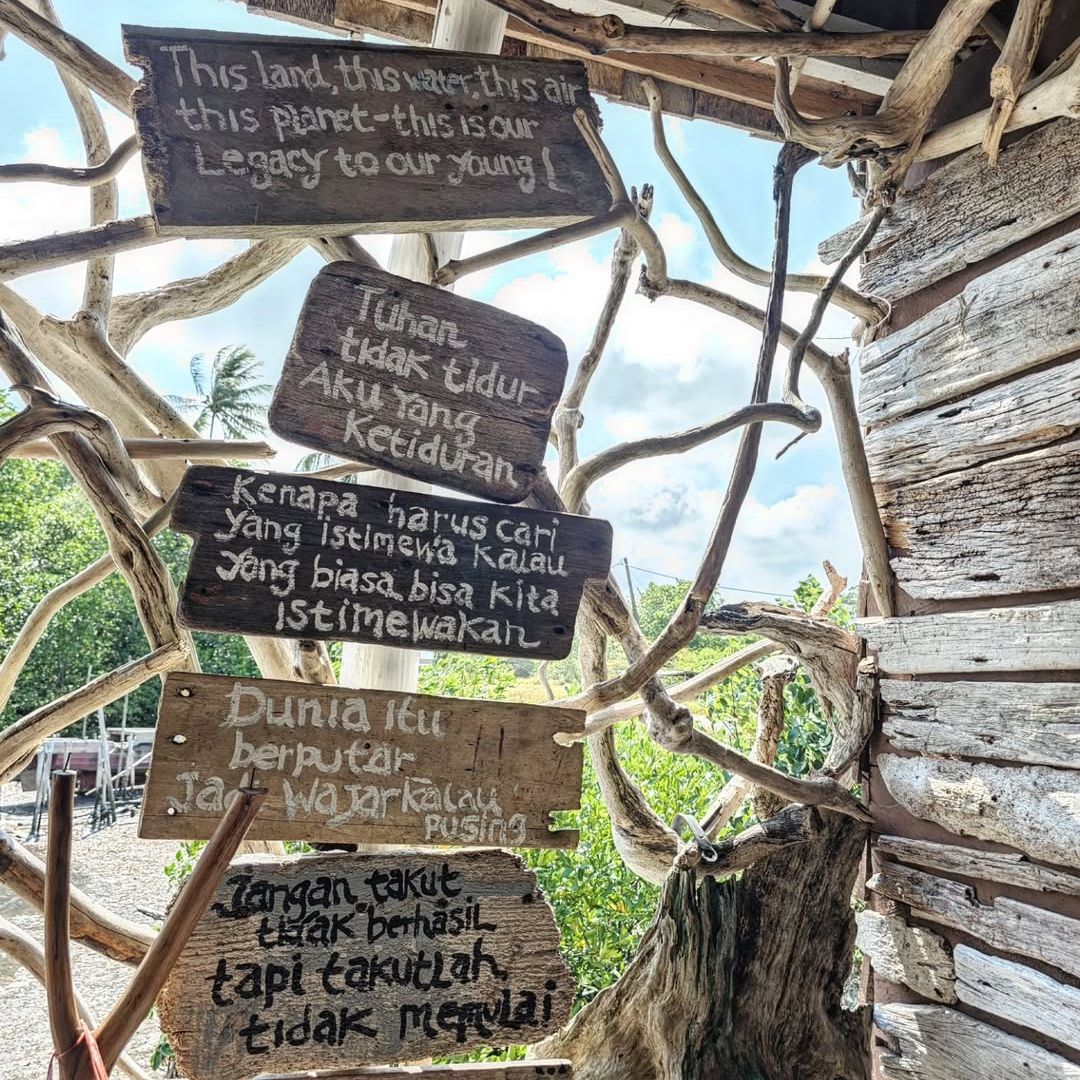 This land, this water, this air
this planet-this is our
Legacy to our young!
Tuhan
tidak tidur
Aku Yang
Ketiduran
Kenapa harus cari
yang istimewa kalau
yang biasa bisa kita
Istimewakan
Dunia itu
berputar
Jadi Wajar kalau
pusing
Jangan takut
tidak berhasil
tapi takutlah
tidak memulai